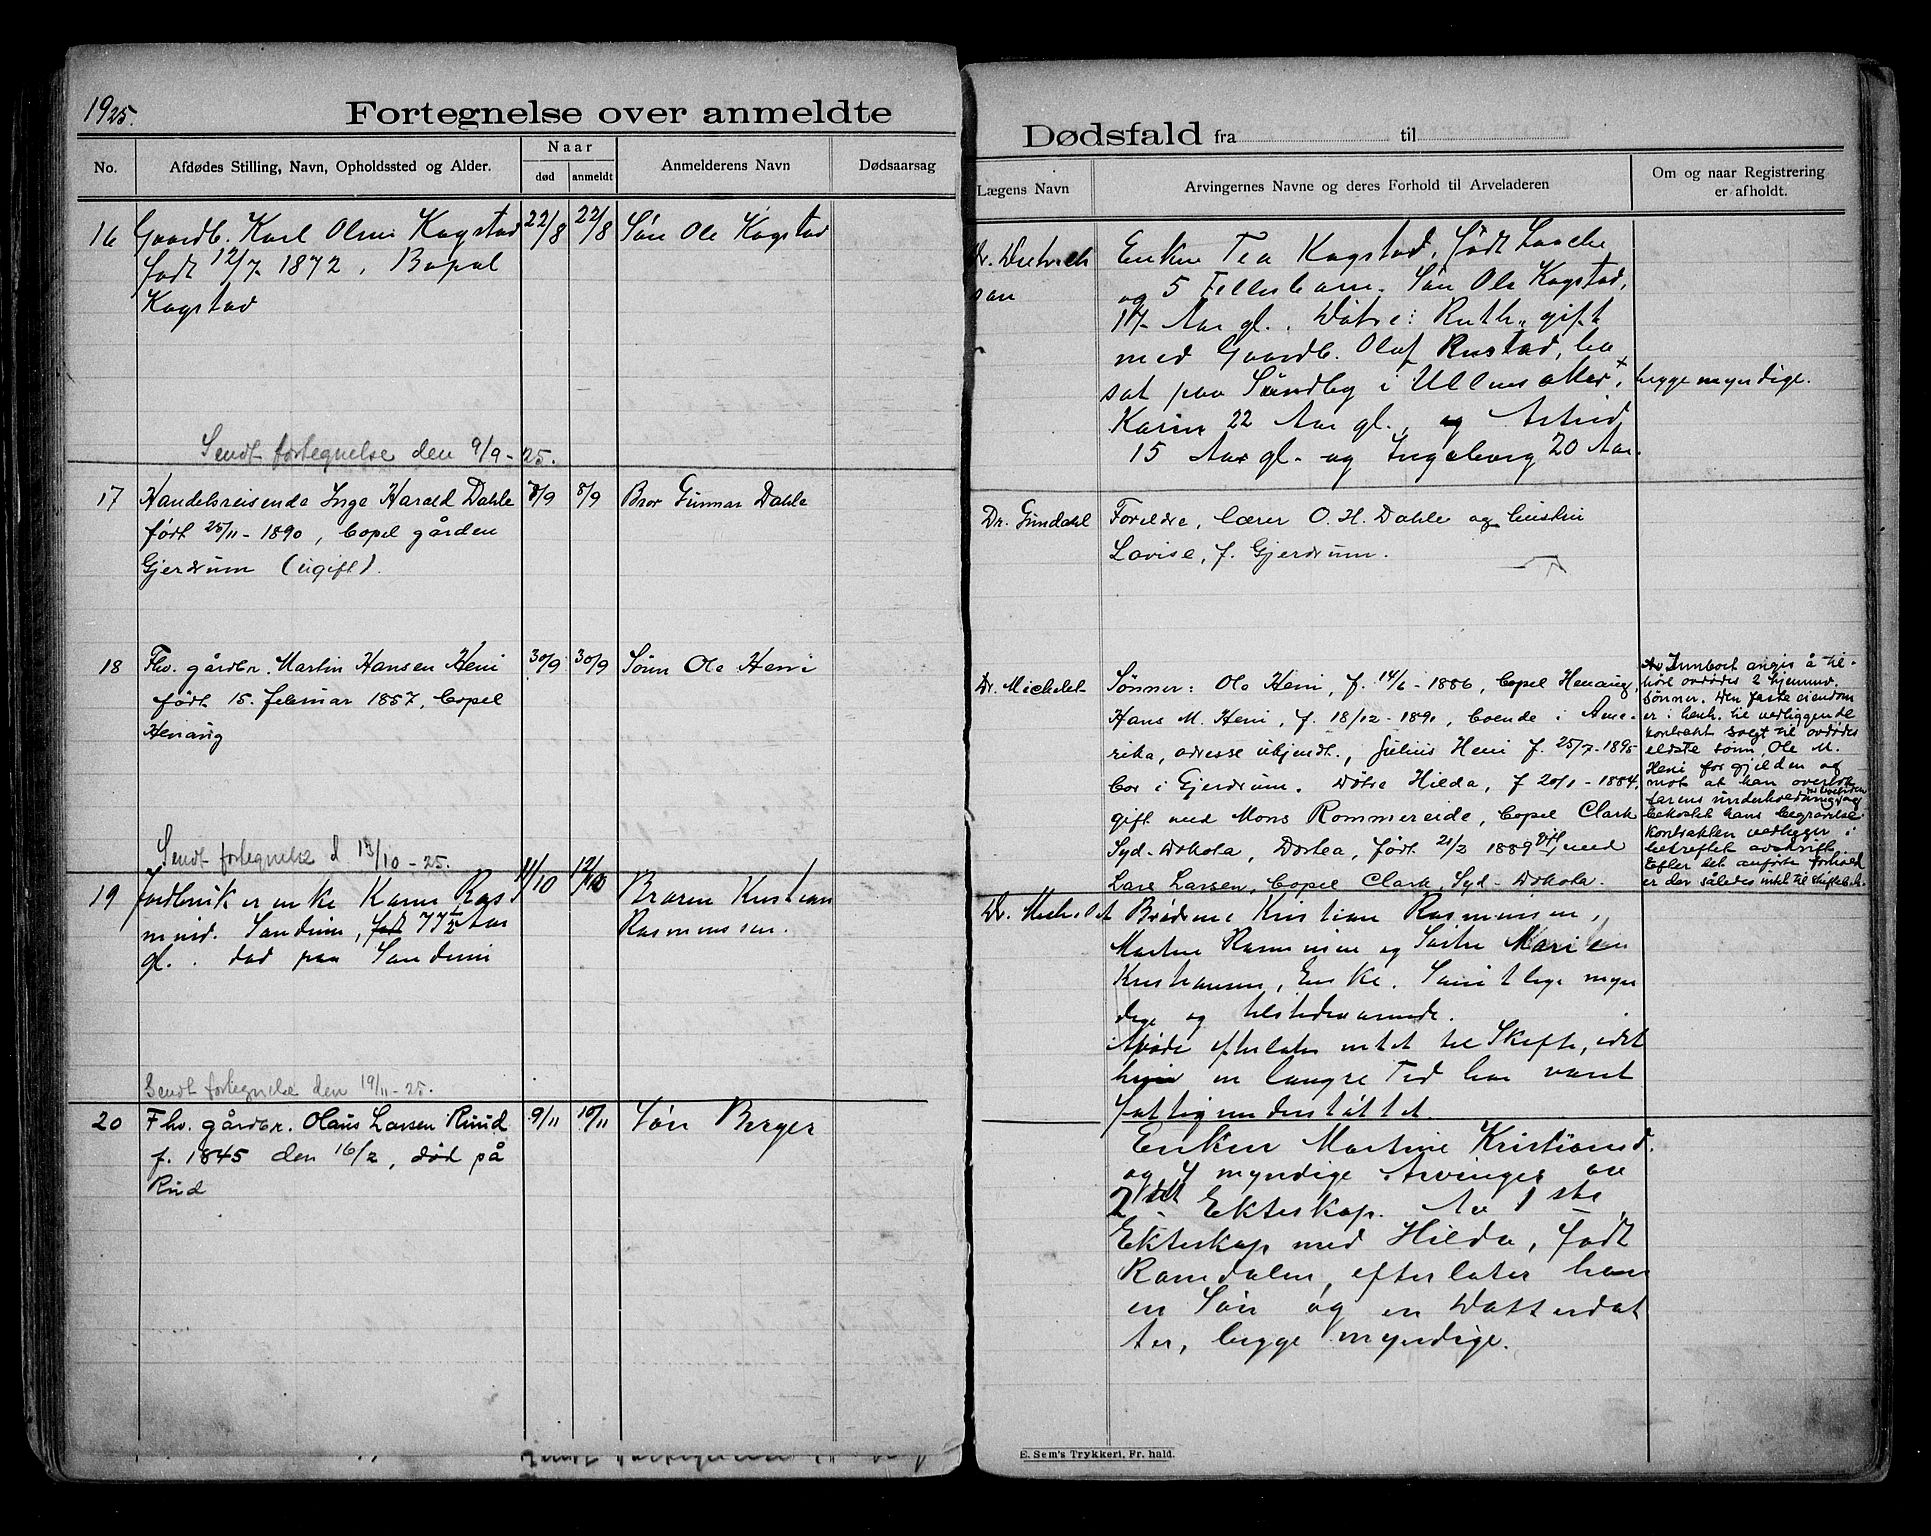 1925.
Fortegnelse over anmeldte
No.
Afdødes Stilling, Navn, Opholdssted og Alder.
Naar
død
anmeldt
Anmelderens Navn
Dødsaarsag
16
Gaardb. Karl Olsen Kogstad
født 12/7 1872, Bopæl
Kogstad
22/8
22/8
Søn Ole Kogstad
Sendt fortegnelse den 9/9-25.
17
Handelsreisende Inge Harald Dahle
født 25/11-1890, bopel gården
Gjerdrum (ugift).
8/9
8/9
Bror Gunnar Dahle
18
Fhv. gårdbr. Martin Hansen Heni
født 15. februar 1857, bopel
Henaug
30/9
30/9
Sønn Ole Heni
Sendt fortegnelse d 13/10-25.
19
Jordbrukerenke Karen Ras
musd. Sandum, født 77½ Aar
gl. død paa Sandum
11/10
12/10
Broren Kristian
Rasmussen.
Sendt fortegnelse den 19/11-25.
20
Fhv. gårdbr. Olaus Larsen Ruud
f. 1845 den 16/2, død på
Rud
9/11
10/11
Søn Berger
Dødsfald fra til
Lægens Navn
Arvingernes Navne og deres Forhold til Arveladeren
Om og naar Registrering
er afholdt.
Dr. Dietrich
son
Enken Tea Kogstad, født
og 5 Fellesbarn. Søn Ole Kogstad,
17 Aar gl., Døtre: Ruth, gift
med Gaardb. Olaf Rustad, bo
sat paa Sundby i Ullensaker +
Karin 22 Aar gl., og Astrid
15 Aar gl. og Ingeborg 20 Aar.
begge myndige.
Dr. Gundahl
Foreldre, lærer O. H. Dahle og hustru
Lovise, f. Gjerdrum.
Dr. Michelet
Sønner: Ole Heni, f. 14/6-1886, bopel Henaug,
Hans M. Heni, f. 18/12-1890, boende i Ame-
rika, adresse ukjendt, Julius Heni f. 25/7-1895
bor i Gjerdrum. Døtre Hilda, f 20/1-1884,
gift med Mons Rommereide, bopel Clark
Syd-Dakota, Dortea, født 21/2 1889 gift med
Lars Larsen, bopel Clark, Syd-Dakota.
Av Innbort angis å til-
høre avdødes 2 hjemmev.
sønner. Den faste eiendom
er i henh. til vedliggende
kontrakt solgt til avdødes
eldste sønn Ole M.
Heni for gjelden og
mot at han overtok
farens underholdning og
bekostet hans begravelse
Kontrakten vedligger i
bekreftet avskrift
Efter det anførte forhold
er der således intet til skiftebeh.
Dr. Michelet
Brødrene Kristian Rasmussen,
Martin Rasmussen og Søster Maria
Kristiansen, Enke. Samtlige myn
dige og tilstedeværende.
Avøde efterlater intet til Skifte, idet
hun en længre Tid har været
fattigunderstøttet.
Enken Martine Kristiansd.
og 4 myndige Arvinger av
2det Ekteskap. Av 1ste
Ekteskap med Hilda, født
Ramdalen, efterlater han
en Søn og en Datterdat
ter, begge myndige.
E. Sem's Trykkeri, Fr.hald.